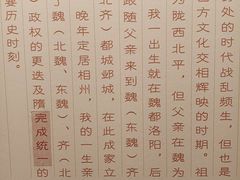 处的时代战乱频生，但也是
方文化交相辉映的时期。祖
为陇西北平，但父亲在魏为
我一出生就在魏都洛阳，后
跟随父亲来到魏（东魏）、齐
北齐）都城邺城，在此成家立
晚年定居相州，我的一生亲
了魏（北魏、东魏）、齐（北
政权的更迭及隋完成统一的
要历史时刻。